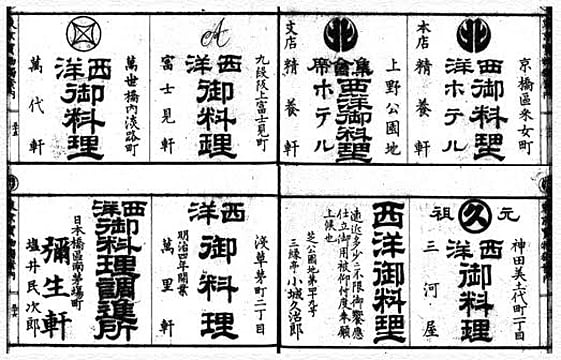 京橋區采女町
西洋御料理
ホテル
本店
精養軒
上野公園地
集會席
西洋御料理
ホテル
支店
精養軒
九段坂上富士見町
西洋御料理
富士見軒
萬世橋内淡路町
西洋御料理
萬代軒
神田美土代町二丁目
元祖
久
西洋御料理
三河屋
西洋御料理
遠近多少ニ不限御饗應
仕立御用被仰付度奉願
上候也
芝公園地第十九号
三緑亭
小城久治郎
淺草茅町二丁目
西洋御料理
明治四年開業
萬里軒
西洋御料理調進所
日本橋區南茅場町
彌生軒
塩井民次郎